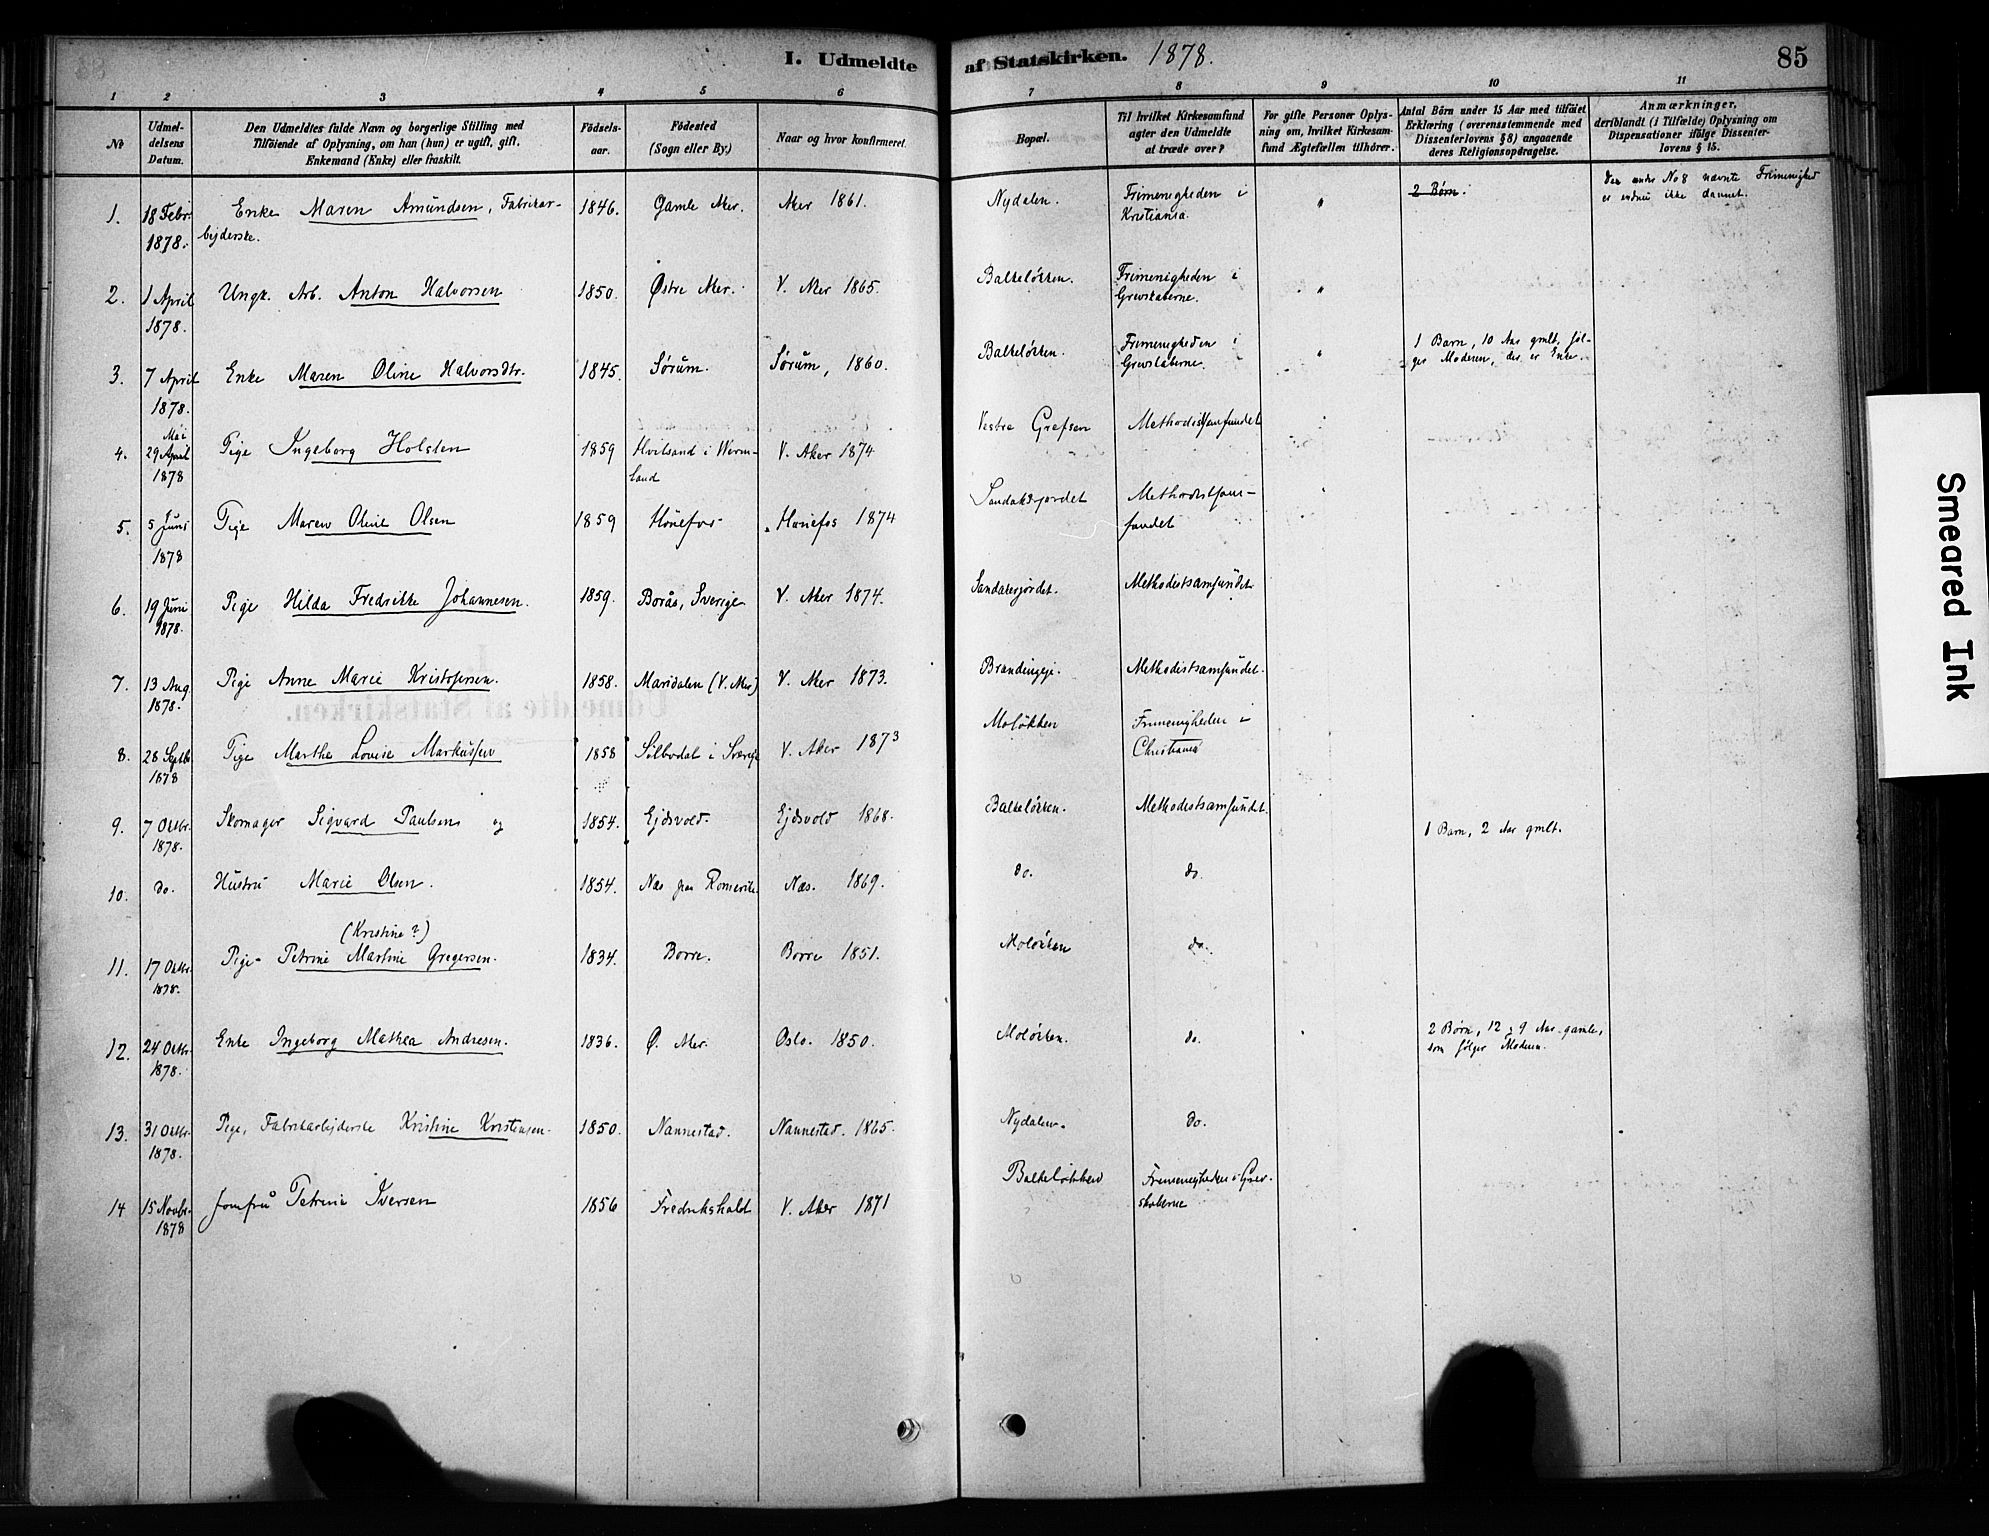 I. Udmeldte af Statskirken. 1878.
85
1 2 3 4 5 6 7 8 9 10 11
No
Udmel-
delsens
Datum.
Den Udmeldtes fulde Navn og borgerlige Stilling med
Tilföiende af Oplysning, om han (hun) er ugift, gift,
Enkemand (Enke) eller fraskilt.
Födsels-
aar.
Födested
(Sogn eller By.)
Naar og hvor konfirmeret.
Bopæl.
Til hvilket Kirkesamfund
agter den Udmeldte
at træde over?
For gifte Personer Oplys-
ning om, hvilket Kirkesam-
fund Ægtefællen tilhörer.
Antal Börn under 15 Aar med tilföiet
Erklæring (overensstemmende med
Dissenterlovens § 8) angaaende
deres Religionsopdragelse.
Anmærkninger,
deriblandt (i Tilfælde) Oplysning om
Dispensationer ifölge Dissenter-
lovens § 15.
1. 18 Febr. 1878. Enke Maren Amundsen, Fabrikar-
bejderske. 1846. Gamle Aker. Aker 1861. Nydalen. Frimenigheden i
Kristiania. " 2 Børn. Den under No 8 nævnte Frimenighed
er endnu ikke dannet.
2. 1 April 1878. Ungk. Arb. Anton Halvorsen 1850. Østre Aker. V. Aker 1865. Balkeløkken. Frimenigheden i
Grevskaberne. "
3. 7 April 1878. Enke Maren Oline Halvorsdtr. 1845. Sørum. Sørum, 1860. Balkeløkken. Frimenigheden i
Grevskaberne. " 1 Barn, 10 Aar gmlt, føl-
ger Moderen, der er Enke.
4. Mai
29 April 1878 Pige Ingeborg Holsten 1859 Hvitsand i Werm-
land V. Aker 1874 Vestre Grefsen Methodistsamfundet
5. 5 Juni 1878 Pige Maren Oline Olsen 1859 Hønefos Hønefos 1874 Sandakerjordet Methodistsam-
fundet
6. 19 Juni 1878. Pige Hilda Fredrikke Johannesen. 1859. Borås, Sverige V. Aker 1874. Sandakerjordet. Methodistsamfundet
7. 13 Aug. 1878. Pige Anne Marie Kristofersen. 1858. Maridalen (V. Aker) V. Aker 1873. Brandengeje. Methodistsamfundet.
8. 28 Septb. 1878 Pige Marthe Lovise Markussen 1858 Silbodal i Sverige V. Aker 1873 Moløkken Frimenigheden i
Christiania
9. 7 Oktbr. 1878. Skomager Sigvard Paulsen og 1854. Ejdsvold. Ejdsvold 1868. Balkeløkken. Methodistsamfundet. 1 Barn, 2 Aar gmlt.
10. do. Hustru Marie Olsen. 1854. Næs paa Romerike Næs. 1869. do. do.
(Kristine?)
11. 17 Oktbr. 1878. Pige Petrine Martine Gregersen. 1834. Borre. Borre 1851. Moløkken do.
12. 24 Oktbr. 1878. Enke Ingeborg Mathea Andresen. 1836. Ø. Aker. Oslo. 1850. Moløkken. do. 2 Børn, 12 & 9 Aar gamle,
som følger Moderen.
13. 31 Oktbr. 1878. Pige, Fabrikarbejderske Kristine Kristiansen. 1850. Nannestad. Nannestad. 1865. Nydalen. do.
14 15 Novbr. 1878 Jomfru Petrine Iversen 1856 Fredrikshald V. Aker 1871 Balkeløkken Frimenigheden i Grev-
skaberne
Smeared Ink